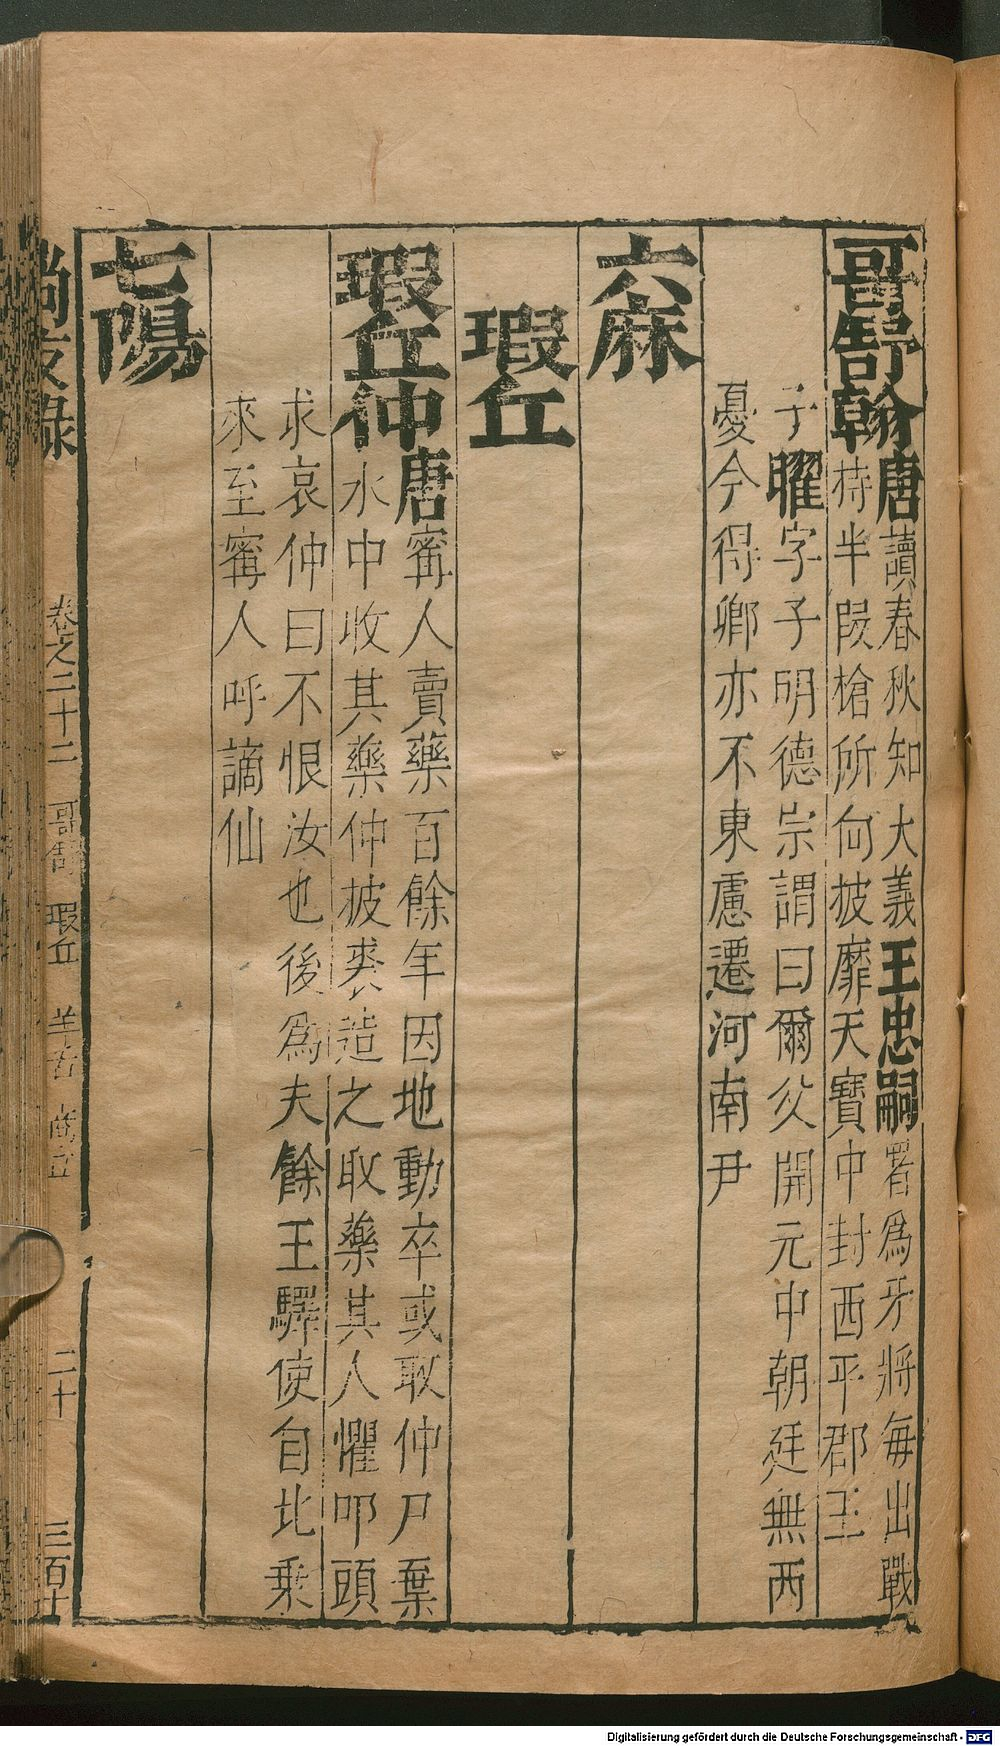 哥舒翰唐讀春秋知大義王忠嗣署爲牙將每出戰
持半段槍所向披靡天寶中封西平郡王
子曜字子明德宗謂曰爾父開元中朝廷無西
憂今得卿亦不東慮遷河南尹
六麻
瑕丘
瑕丘仲唐甯人賣藥百餘年因地動卒或取仲尸棄
水中收其藥仲披裘造之取藥其人懼叩頭
求哀仲曰不恨汝也後爲夫餘王驛使自北乘
來至甯人呼謫仙
七陽
尚友錄 卷之二十二 哥舒 瑕丘 羊舌 商丘 二十
Digitalisierung gefördert durch die Deutsche Forschungsgemeinschaft - DFG